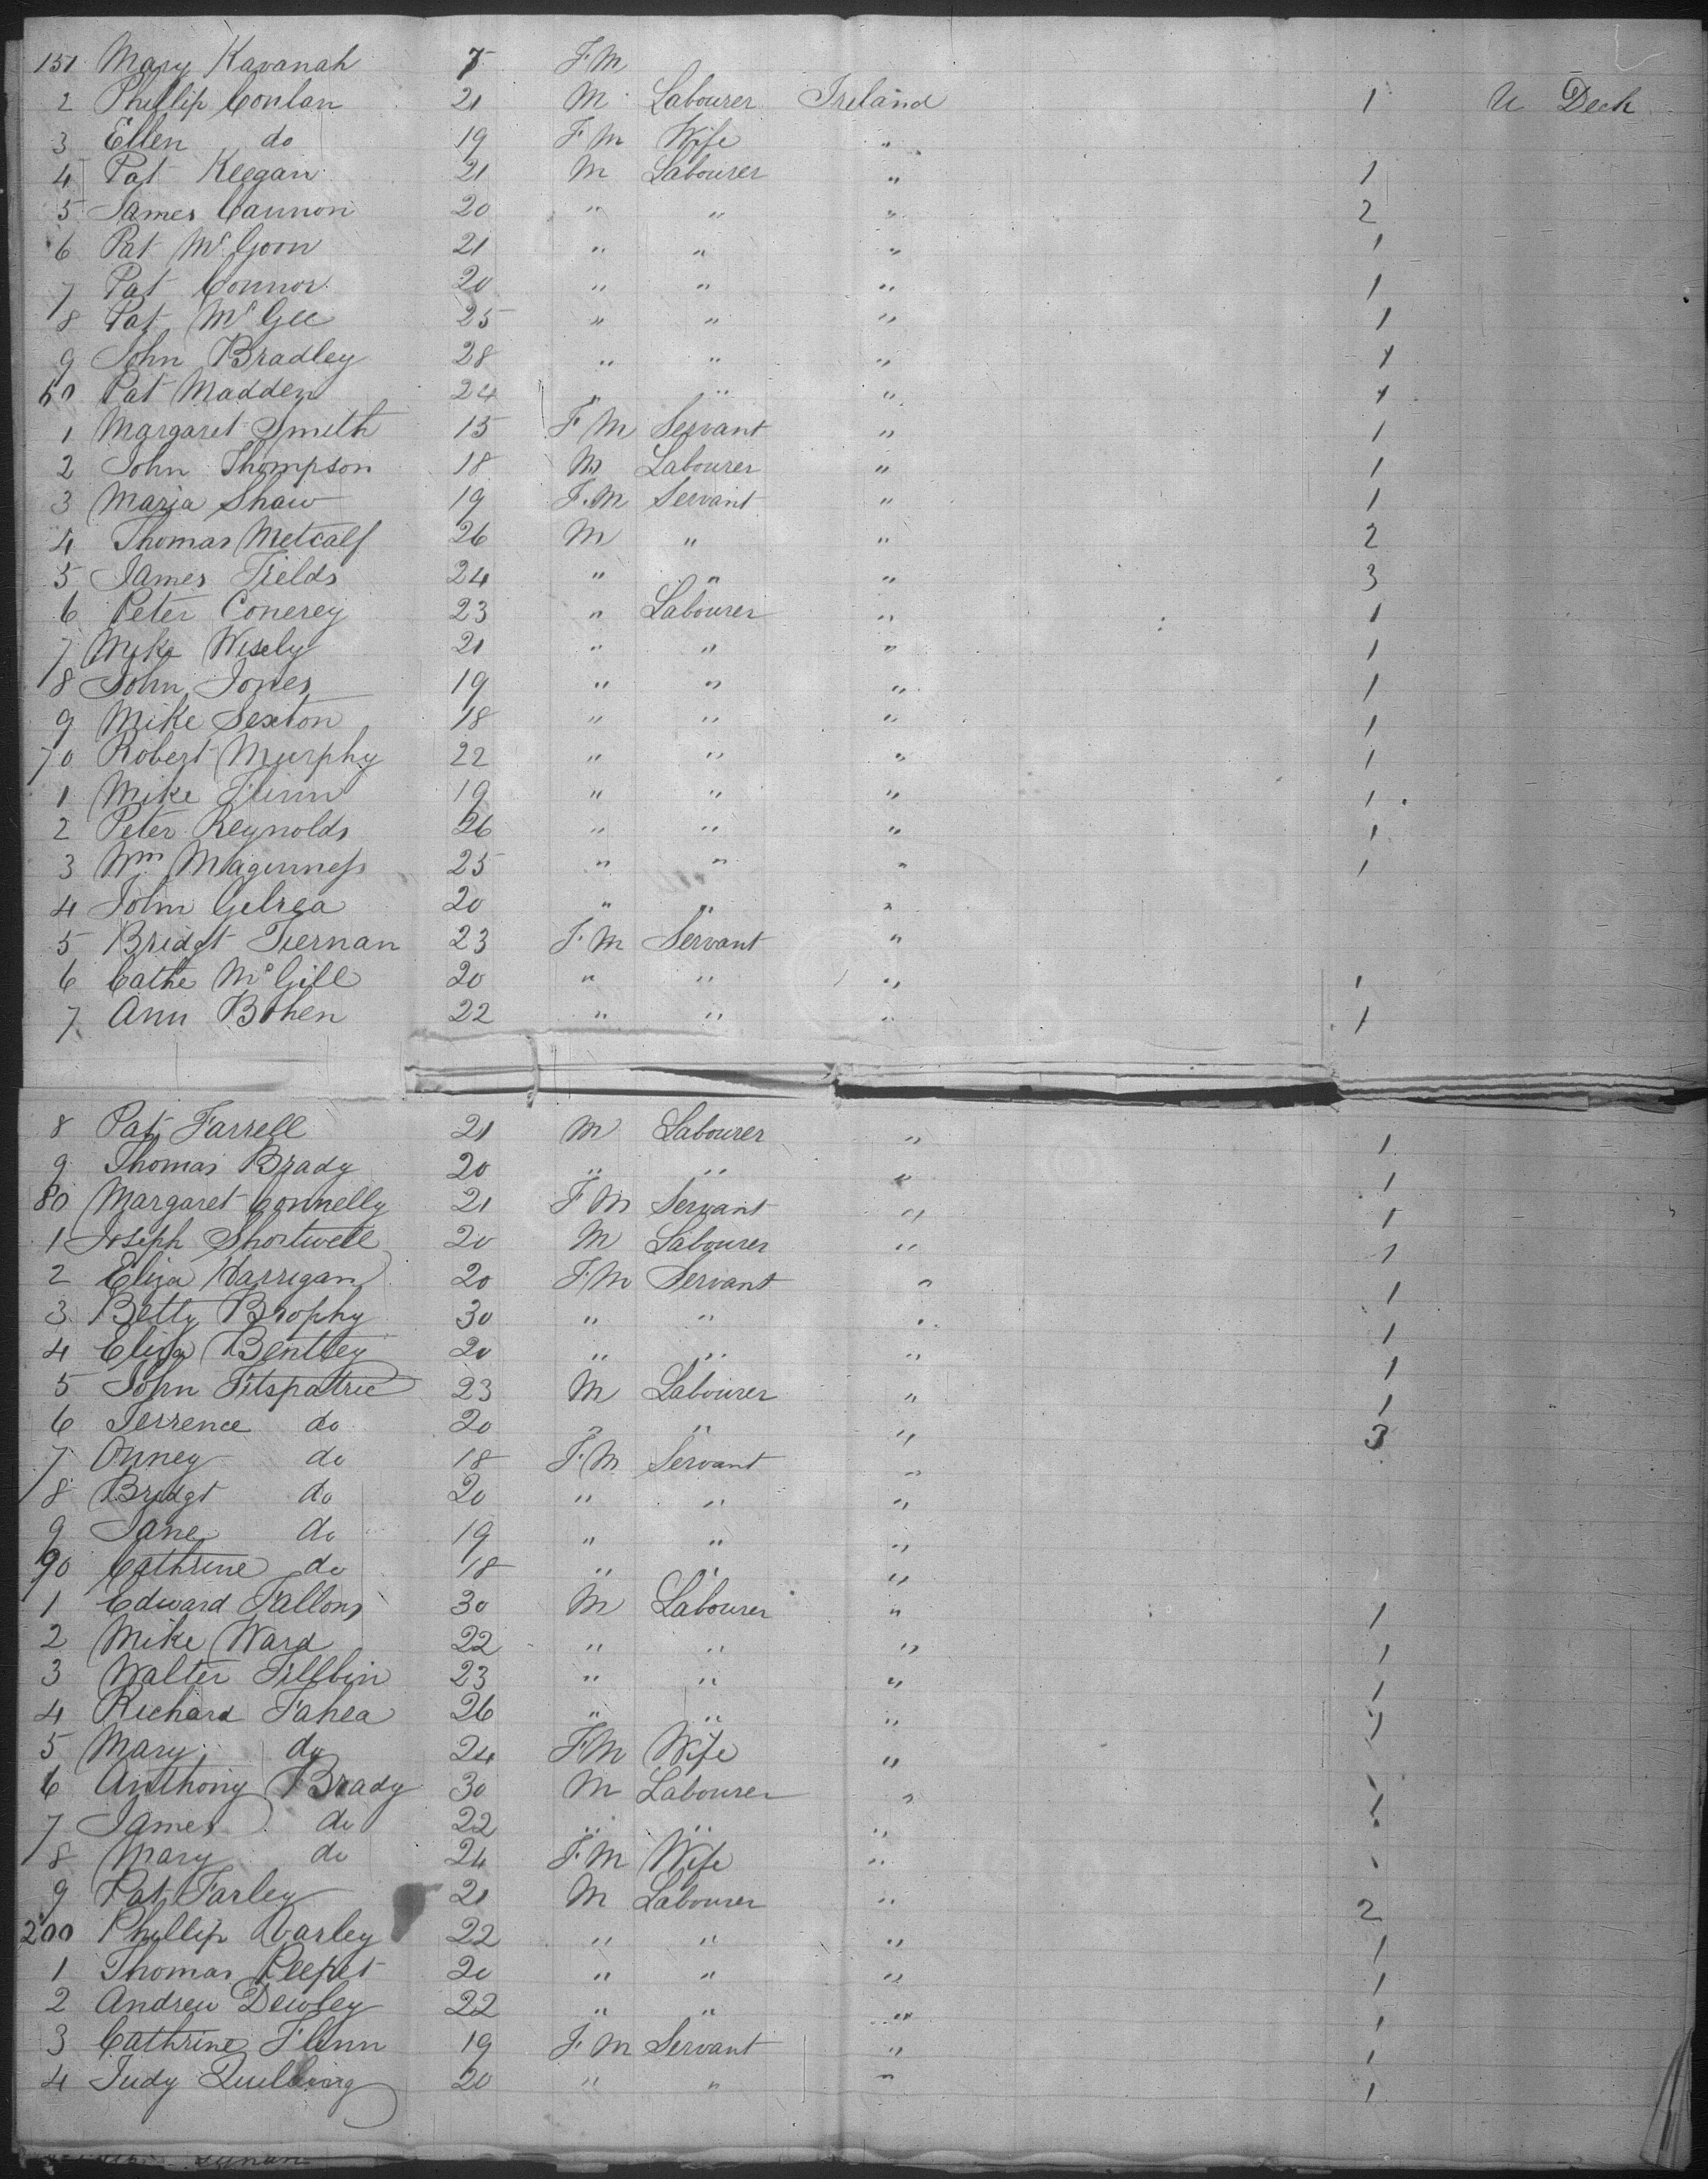 151 Mary Kavanah 7 F M
2 Phillip Conlan 21 M Labourer Ireland 1 U Deck
3 Ellen do 19 F M Wife "
4 Pat Keegan 21 M Labourer " 1
5 James Cannon 20 " " " 2
6 Pat McGoon 21 " " " 1
7 Pat Connor 20 " " " 1
8 Pat McGee 25 " " " 1
9 John Bradley 28 " " " 1
60 Pat Madden 24 " " " 1
1 Margaret Smith 15 F M Servant " 1
2 John Thompson 18 M Labourer " 1
3 Maria Shaw 19 F. M Servant " 1
4 Thomas Metcalf 26 M " " 2
5 James Fields 24 " " " 3
6 Peter Conerey 23 " Labourer " 1
7 Mike Wisely 21 " " " 1
8 John Jones 19 " " " 1
9 Mike Sexton 18 " " " 1
70 Robert Murphy 22 " " " 1
1 Mike Flinn 19 " " " 1
2 Peter Reynolds 26 " " " 1
3 Wm Maginness 25 " " " 1
4 John Gilrea 20 " " "
5 Bridgt Tiernan 23 F M Servant "
6 Cathe McGill 20 " " " 1
7 Ann Bohen 22 " " " 1
8 Pat Farrell 21 M Labourer " 1
9 Thomas Brady 20 " " " 1
80 Margaret Connelly 21 F M Servant " 1
1 Joseph Shortwell 20 M Labourer " 1
2 Eliza Harrigan 20 F M Servant " 1
3 Betty Brophy 30 " " " 1
4 Eliza Bentley 20 " " " 1
5 John Fitspatric 23 M Labourer " 1
6 Terrence do 20 " " " 3
7 Anney do 18 F. M Servant "
8 Bridgt do 20 " " "
9 Jane do 19 " " "
90 Cathrine do 18 " " "
1 Edward Fallons 30 M Labourer " 1
2 Mike Ward 22 " " " 1
3 Walter Fillbin 23 " " " 1
4 Richard Fahea 26 " " " 1
5 Mary do 24 F M Wife "
6 Anthony Brady 30 M Labourer " 1
7 James do 22 " " "
8 Mary do 24 F M Wife "
9 Pat Farley 21 M Labourer " 2
200 Phillip Varley 22 " " " 1
1 Thomas Peepet 20 " " " 1
2 Andrew Dewley 22 " " " 1
3 Cathrine Flinn 19 F M Servant " 1
4 Judy 20 " " " 1